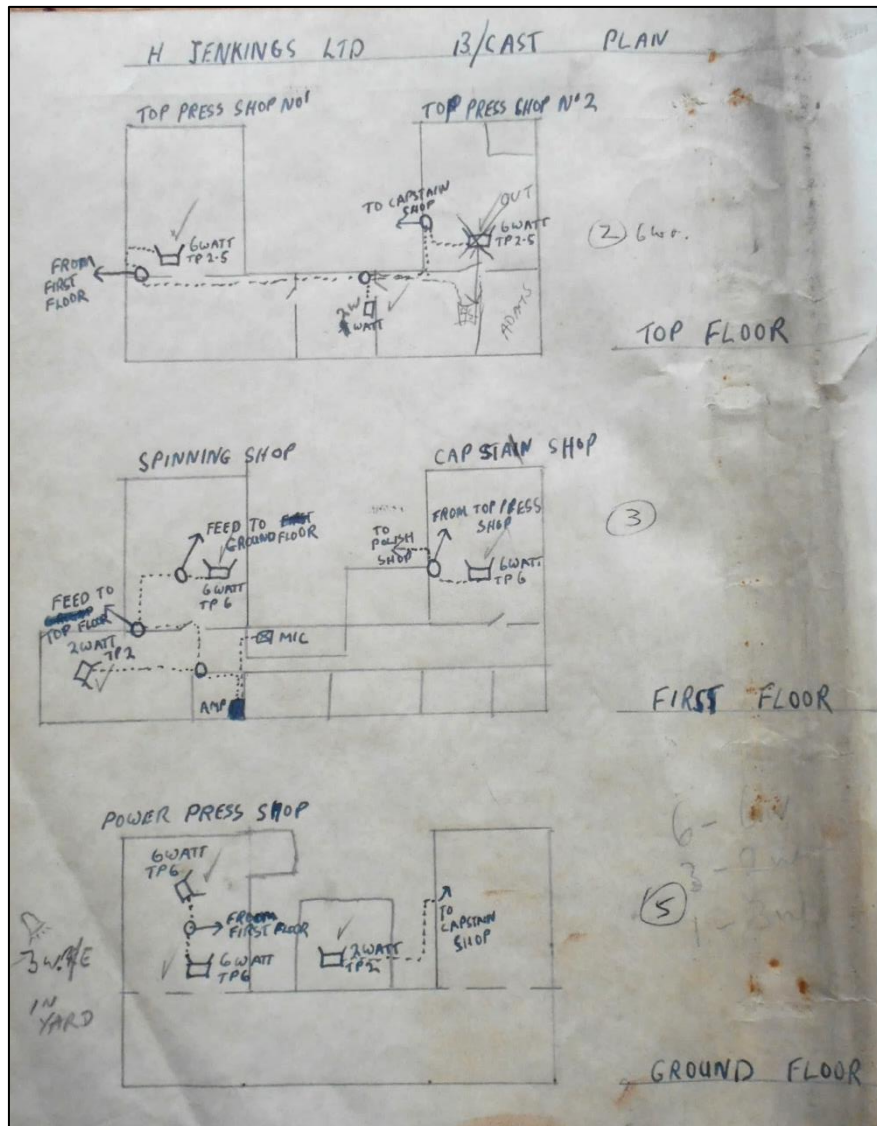 H JENKINGS LTD B/CAST PLAN
TOP PRESS SHOP No1
TOP PRESS SHOP No2
TO CAPSTAIN
SHOP
OUT
6WATT
TP2-5
6WATT
TP2-5
(2) 6w
FROM
FIRST
FLOOR
2W
WATT
ADAMS
TOP FLOOR
SPINNING SHOP
CAPSTAIN SHOP
FEED TO
GROUND FLOOR
6WATT
TP6
TO
POLISH
SHOP
FROM TOP PRESS
SHOP
6WATT
TP6
(3)
FEED TO
TOP FLOOR
2WATT
TP2
MIC
AMP
FIRST FLOOR
POWER PRESS SHOP
6WATT
TP6
FROM
FIRST FLOOR
6WATT
TP6
2WATT
TP2
TO
CAPSTAIN
SHOP
(5)
6 - 6W
3 - 2W
1 - 3W
3W.R/E
IN
YARD
GROUND FLOOR